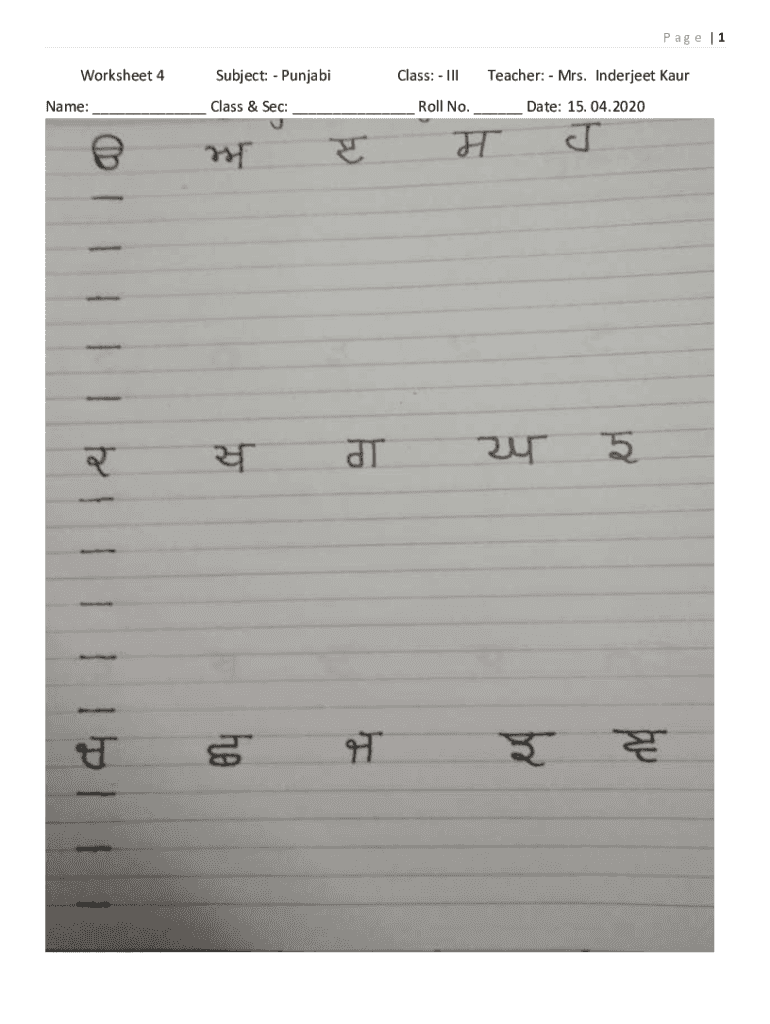 Page | 1
Worksheet 4 Subject: - Punjabi Class: - III Teacher: - Mrs. Inderjeet Kaur
Name: ______________ Class & Sec: _______________ Roll No. ______ Date: 15. 04.2020
ੳ ਅ ੲ ਸ ਹ
ਕ ਖ ਗ ਘ ਙ
ਚ ਛ ਜ ਝ ਞ